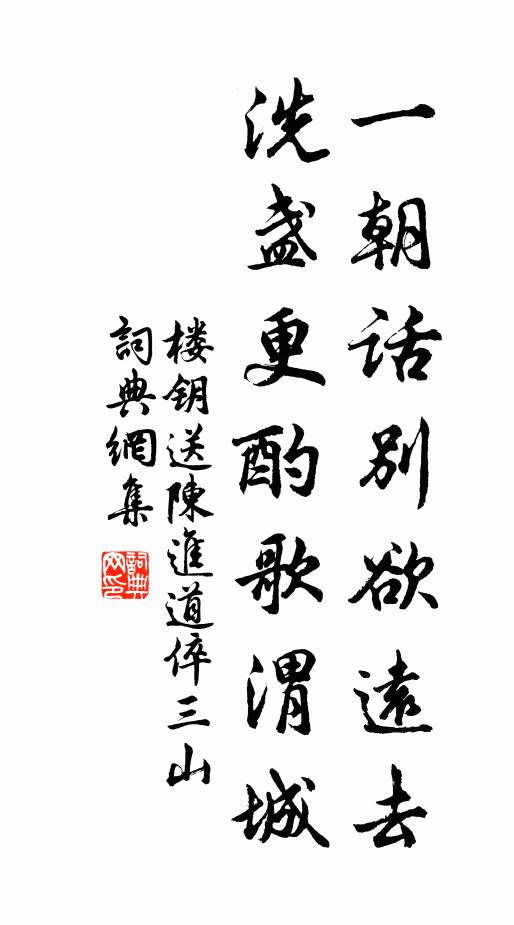 一朝话别欲遠去
洗盏更酌歌渭城
楼钥送陳進道倅三山
詞典網集
詞典
网印